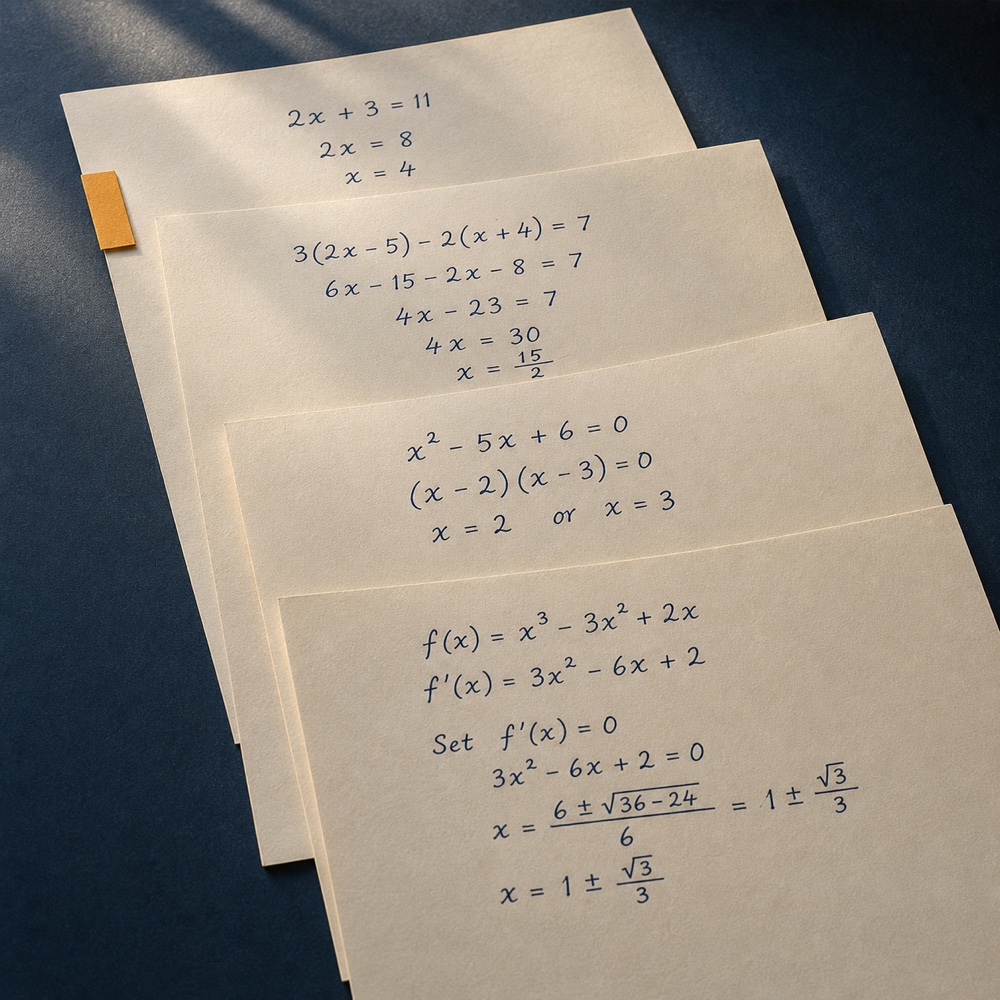 2x + 3 = 11
2x = 8
x = 4
3(2x − 5) − 2(x + 4) = 7
6x − 15 − 2x − 8 = 7
4x − 23 = 7
4x = 30
x = 15/2
x² − 5x + 6 = 0
(x − 2)(x − 3) = 0
x = 2 or x = 3
f(x) = x³ − 3x² + 2x
f'(x) = 3x² − 6x + 2
Set f'(x) = 0
3x² − 6x + 2 = 0
x = (6 ± √(36 − 24))/6 = 1 ± √3/3
x = 1 ± √3/3